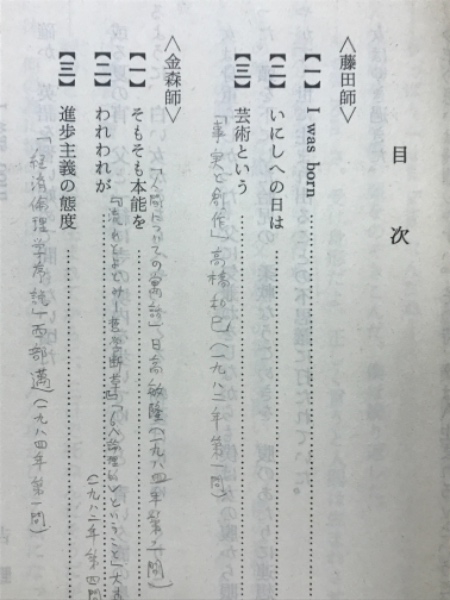 目次
〈藤田師〉
【一】 I was born ……………………
【二】 いにしへの日は ……………………
【三】 芸術という ……………………
「事実と創作」高橋和巳(一九八二年第一問)
〈金森師〉
【一】 そもそも本能を ……………………
「人間についての寓話」日高敏隆(一九八四年第二問)
【二】 われわれが ……………………
『流れとよどみ―哲学断章』「〈論理的〉ということ」大森
(一九八二年第四問)
【三】 進歩主義の態度 ……………………
「経済倫理学序説」西部邁(一九八四年第一問)